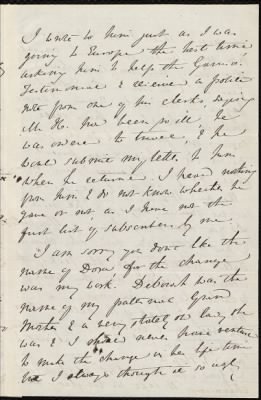 I wrote to him just as I was
going to Europe the last time
asking him to help the Garrison
Testimonial & received a polite
note from one of his clerks, saying
Mr H. had been so ill, he
was ordered to travel, & he
would submit my letter to him
when he returned. I heard nothing
from him & do not know whether he
gave or not, as I have not the
first list of subscribers by me.
I am sorry you don't like the
name of Dora, for the change
was my work. Deborah was the
name of my paternal Grand
Mother & a very stately old lady she
was & I should never have ventured
to make the change in her life time
but I always thought it so ugly